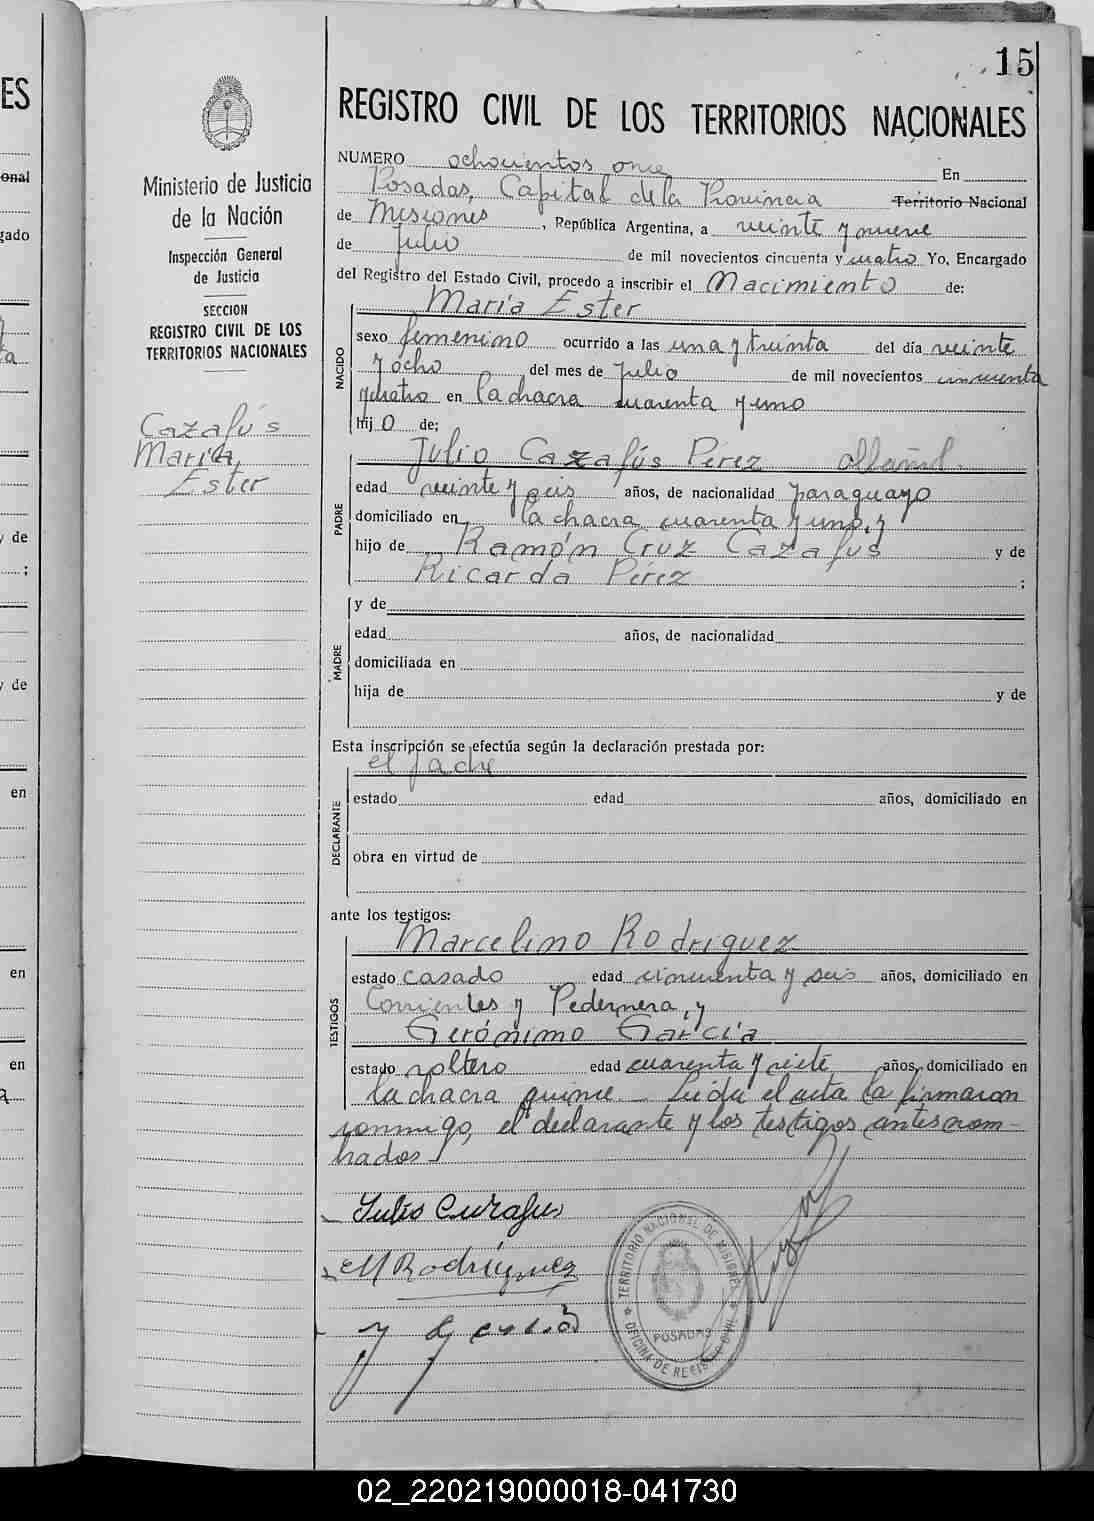 15
REGISTRO CIVIL DE LOS TERRITORIOS NACIONALES
Ministerio de Justicia
de la Nación
Inspección General
de Justicia
SECCION
REGISTRO CIVIL DE LOS
TERRITORIOS NACIONALES
Cazafús
María
Ester
NUMERO ochocientos once En
Posadas, Capital de la Provincia Territorio Nacional
de Misiones, República Argentina, a veinte y nueve
de Julio de mil novecientos cincuenta y cuatro Yo, Encargado
del Registro del Estado Civil, procedo a inscribir el Nacimiento de:
María Ester
NACIDO
sexo femenino ocurrido a las una y treinta del día veinte
y ocho del mes de Julio de mil novecientos cincuenta
y cuatro en la chacra cuarenta y uno
hij o de;
Julio Cazafús Pérez
PADRE
edad veinte y seis años, de nacionalidad paraguayo
domiciliado en la chacra cuarenta y uno, y
hijo de Ramón Cruz Cazafús y de
Ricarda Pérez ;
MADRE
y de
edad años, de nacionalidad
domiciliada en
hija de y de
Esta inscripción se efectúa según la declaración prestada por:
el padre
DECLARANTE
estado edad años, domiciliado en
obra en virtud de
ante los testigos:
Marcelino Rodriguez
TESTIGOS
estado casado edad cincuenta y seis años, domiciliado en
Corrientes y Pedernera, y
Gerónimo García
estado soltero edad cuarenta y siete años, domiciliado en
la chacra quince. Leída el acta la firmaron
conmigo, el declarante y los testigos antes nom-
brados
Julio Cazafus
M Rodríguez
TERRITORIO NACIONAL DE MISIONES
POSADAS
OFICINA DE REGISTRO CIVIL
ES
onal
gado
y de
;
y de
en
en
en
02_220219000018-041730